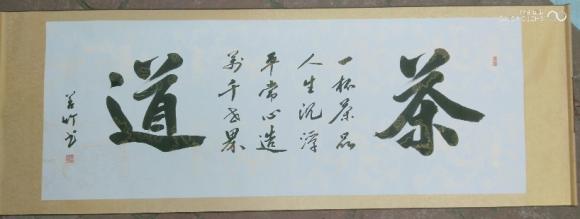 茶
一杯茶品
人生沉浮
平常心造
萬千世界
道